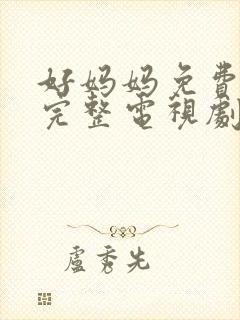 好妈妈免費
完整電視劇
盧秀先